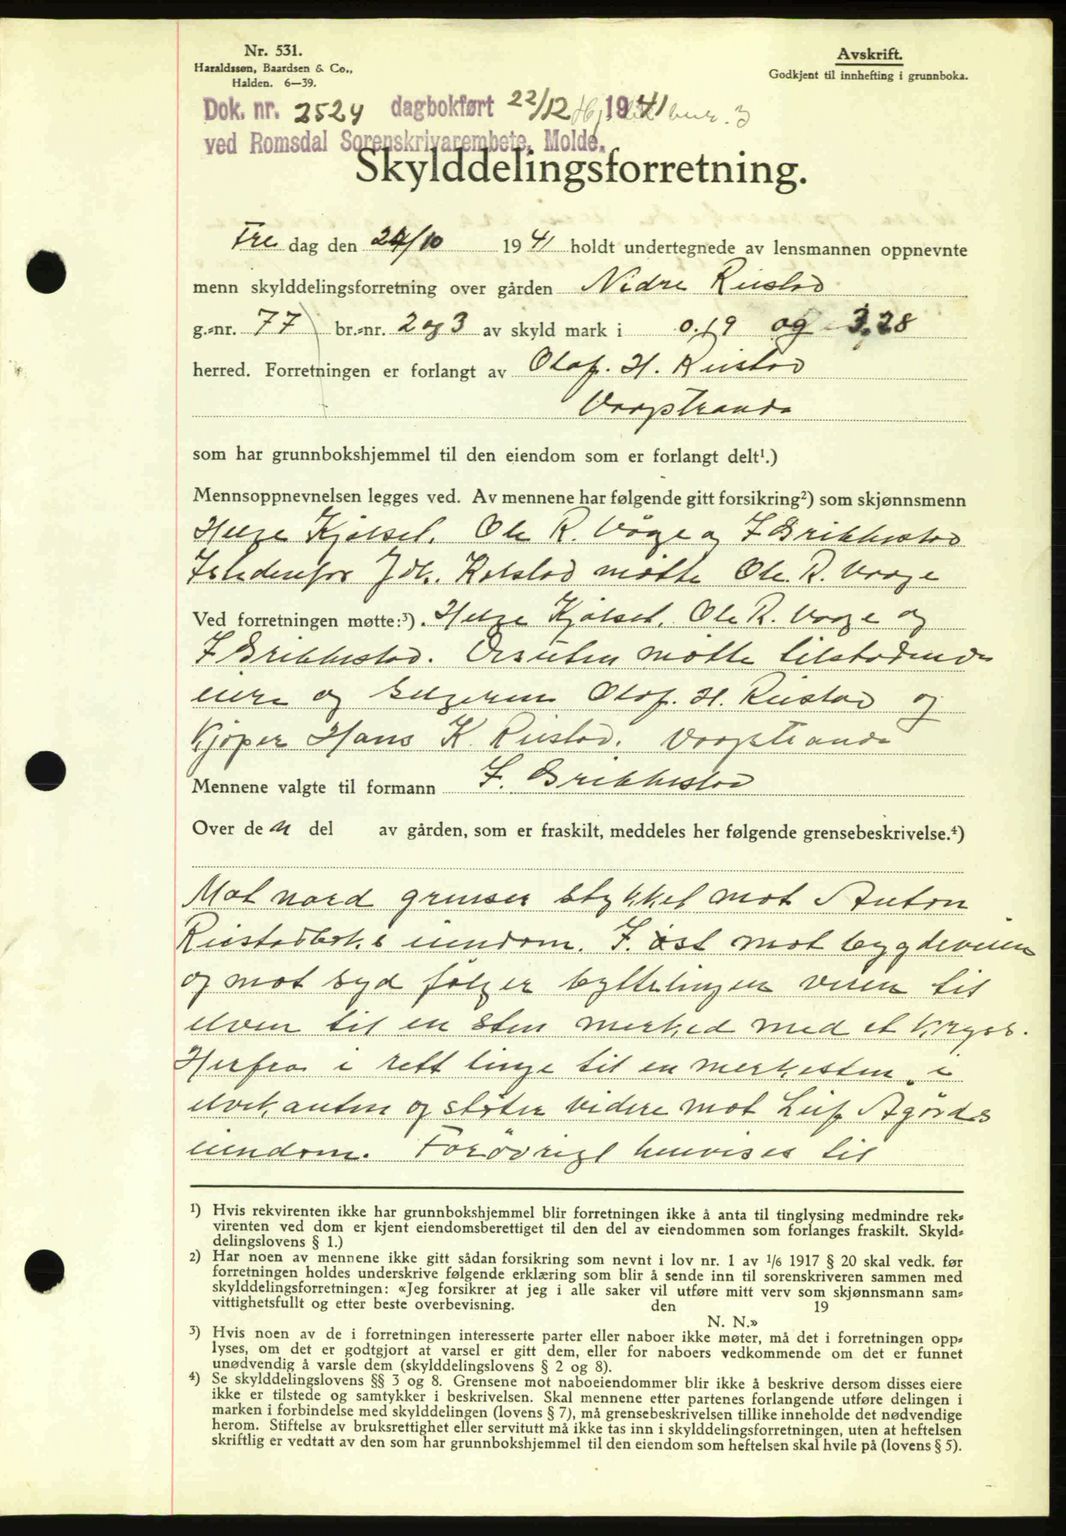 Nr. 531.
Haraldssøn, Baardsen & Co.,
Halden. 6—39.
Avskrift.
Godkjent til innhefting i grunnboka.
Dok. nr. 2524 dagbokført 22/12 1941
ved Romsdal Sorenskrivarembete, Molde.
Skylddelingsforretning.
Fre dag den 24/10 1941 holdt undertegnede av lensmannen oppnevnte
menn skylddelingsforretning over gården Nidre Reistad
g.-nr. 77 br.-nr. 2 og 3 av skyld mark i 0.19 og 3.28
herred. Forretningen er forlangt av Olaf. H. Reistad
Vaagstranda
som har grunnbokshjemmel til den eiendom som er forlangt delt¹.)
Mennsoppnevnelsen legges ved. Av mennene har følgende gitt forsikring²) som skjønnsmenn
Helge Kjølset. Ole R. Våge og F Brikkestad
Istedenfor Joh. Kolstad møtte Ole. R. Vaage
Ved forretningen møtte:³). Helge Kjølset. Ole R. Vaage og
F Brikkestad. Desuten møtte tilstødende
eiere og selgeren Olaf. H. Reistad og
Kjøper Hans K. Reistad. Vaagstranda
Mennene valgte til formann F. Brikkestad
Over de n del av gården, som er fraskilt, meddeles her følgende grensebeskrivelse.⁴)
Mot nord grenser stykket mot Anton
Reistadbak s eiendom. I. øst mot bygdeveien
og mot syd følger byttelingen veien til
elven til en sten merked med et kryss.
Herfra i rett linje til en merkesten i
elvekanten og støter videre mot Leif Agørds
eiendom. Forøvrigt henvises til
¹) Hvis rekvirenten ikke har grunnbokshjemmel blir forretningen ikke å anta til tinglysing medmindre rek-
virenten ved dom er kjent eiendomsberettiget til den del av eiendommen som forlanges fraskilt. Skyld-
delingslovens § 1.)
²) Har noen av mennene ikke gitt sådan forsikring som nevnt i lov nr. 1 av 1/6 1917 § 20 skal vedk. før
forretningen holdes underskrive følgende erklæring som blir å sende inn til sorenskriveren sammen med
skylddelingsforretningen: «Jeg forsikrer at jeg i alle saker vil utføre mitt verv som skjønnsmann sam-
vittighetsfullt og etter beste overbevisning. den 19
N. N.»
³) Hvis noen av de i forretningen interesserte parter eller naboer ikke møter, må det i forretningen opp-
lyses, om det er godtgjort at varsel er gitt dem, eller for naboers vedkommende om det er funnet
unødvendig å varsle dem (skylddelingslovens § 2 og 8).
⁴) Se skylddelingslovens §§ 3 og 8. Grensene mot naboeiendommer blir ikke å beskrive dersom disses eiere
ikke er tilstede og samtykker i beskrivelsen. Skal mennene etter partenes forlangende utføre delingen i
marken i forbindelse med skylddelingen (lovens § 7), må grensebeskrivelsen tillike inneholde det nødvendige
herom. Stiftelse av bruksrettighet eller servitutt må ikke tas inn i skylddelingsforretningen, uten at heftelsen
skriftlig er vedtatt av den som har grunnbokshjemmel til den eiendom som heftelsen skal hvile på (lovens § 5).